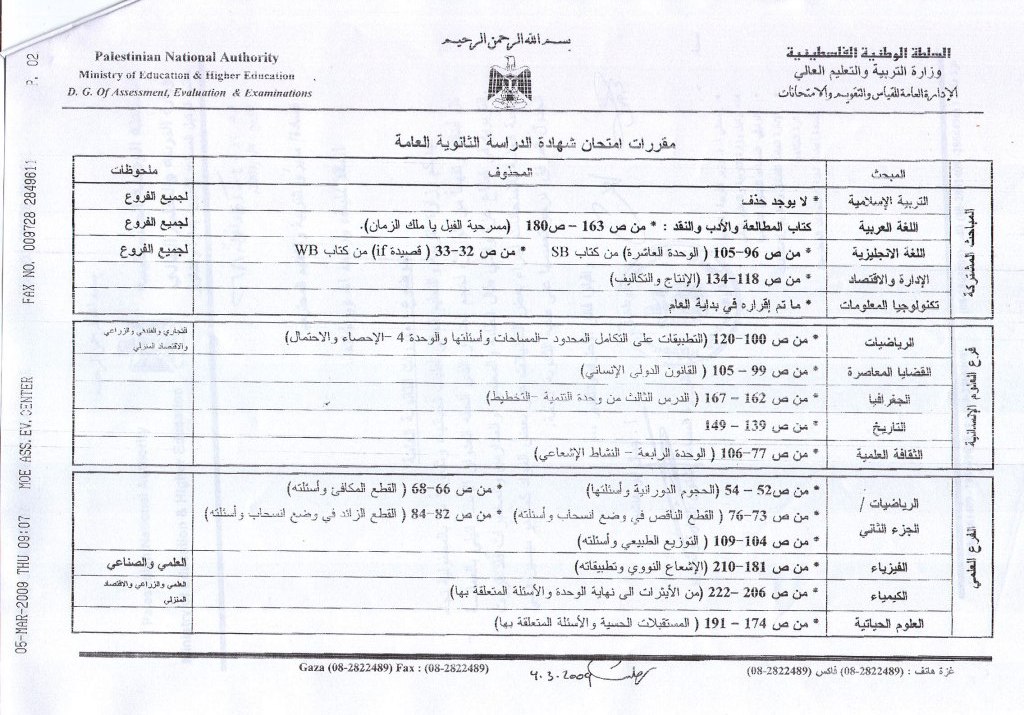 بسم الله الرحمن الرحيم
Palestinian National Authority
Ministry of Education & Higher Education
D. G. Of Assessment, Evaluation & Examinations
السلطة الوطنية الفلسطينية
وزارة التربية والتعليم العالي
الإدارة العامة للقياس والتقويم والامتحانات
مقررات امتحان شهادة الدراسة الثانوية العامة
المبحث المحذوف ملحوظات
المباحث المشتركة
التربية الإسلامية * لا يوجد حذف لجميع الفروع
اللغة العربية كتاب المطالعة والأدب والنقد : * من ص 163 – ص180 (مسرحية الفيل يا ملك الزمان). لجميع الفروع
اللغة الانجليزية * من ص 96–105 ( الوحدة العاشرة) من كتاب SB * من ص 32–33 ( قصيدة if) من كتاب WB لجميع الفروع
الإدارة والاقتصاد * من ص 118–134 (الإنتاج والتكاليف)
تكنولوجيا المعلومات * ما تم إقراره في بداية العام
فرع العلوم الإنسانية
الرياضيات * من ص 100–120 (التطبيقات على التكامل المحدود –المساحات وأسئلتها والوحدة 4 –الإحصاء والاحتمال) التجاري والفندقي والزراعي والاقتصاد المنزلي
القضايا المعاصرة * من ص 99 – 105 ( القانون الدولي الإنساني)
الجغرافيا * من ص 162 – 167 ( الدرس الثالث من وحدة التنمية –التخطيط)
التاريخ * من ص 139 – 149
الثقافة العلمية * من ص 77–106 ( الوحدة الرابعة – النشاط الإشعاعي)
الفرع العلمي
الرياضيات / الجزء الثاني
* من ص52 – 54 (الحجوم الدورانية وأسئلتها) * من ص 66–68 ( القطع المكافئ وأسئلته)
* من ص 73–76 ( القطع الناقص في وضع انسحاب وأسئلته) * من ص 82–84 ( القطع الزائد في وضع انسحاب وأسئلته)
* من ص 104–109 ( التوزيع الطبيعي وأسئلته)
الفيزياء * من ص 181–210 (الإشعاع النووي وتطبيقاته) العلمي والصناعي
الكيمياء * من ص 206 –222 (من الأيثرات الى نهاية الوحدة والأسئلة المتعلقة بها) العلمي والزراعي والاقتصاد المنزلي
العلوم الحياتية * من ص 174 – 191 ( المستقبلات الحسية والأسئلة المتعلقة بها)
Gaza (08-2822489) Fax : (08-2822489)
4.3.2009
غزة هاتف : (08-2822489) فاكس (08-2822489)
05-MAR-2009 THU 09:07 MOE ASS.EV.CENTER FAX NO. 009728 2849611 P. 02